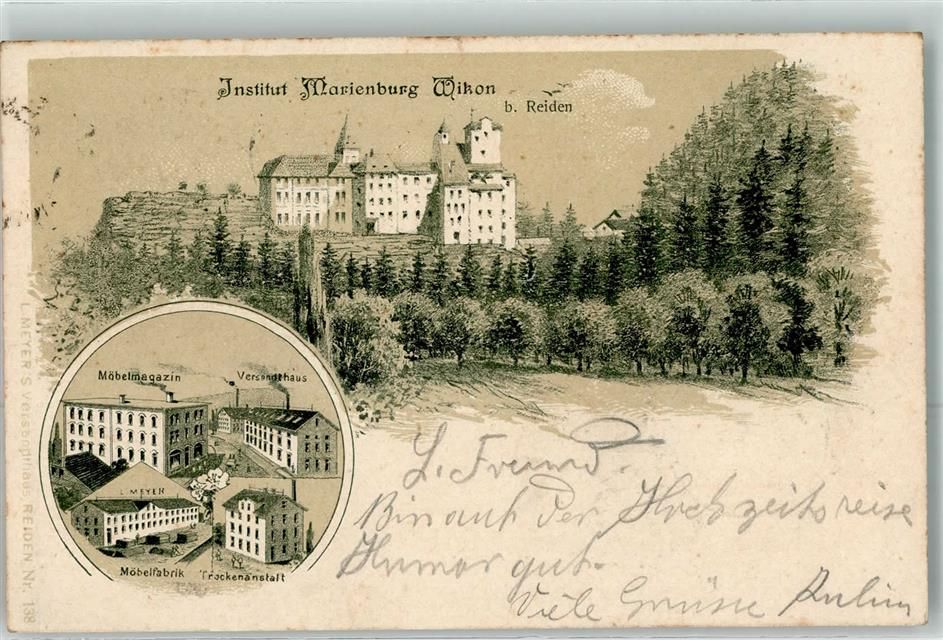 Institut Marienburg Wikon
b. Reiden
Möbelmagazin
Versandthaus
L. MEYER
Möbelfabrik
Trockenanstalt
L. MEYER'S Versandthaus, REIDEN Nr. 138
L. Freund.
Bin auf der Hochzeitsreise
Humor gut.
Viele Grüsse